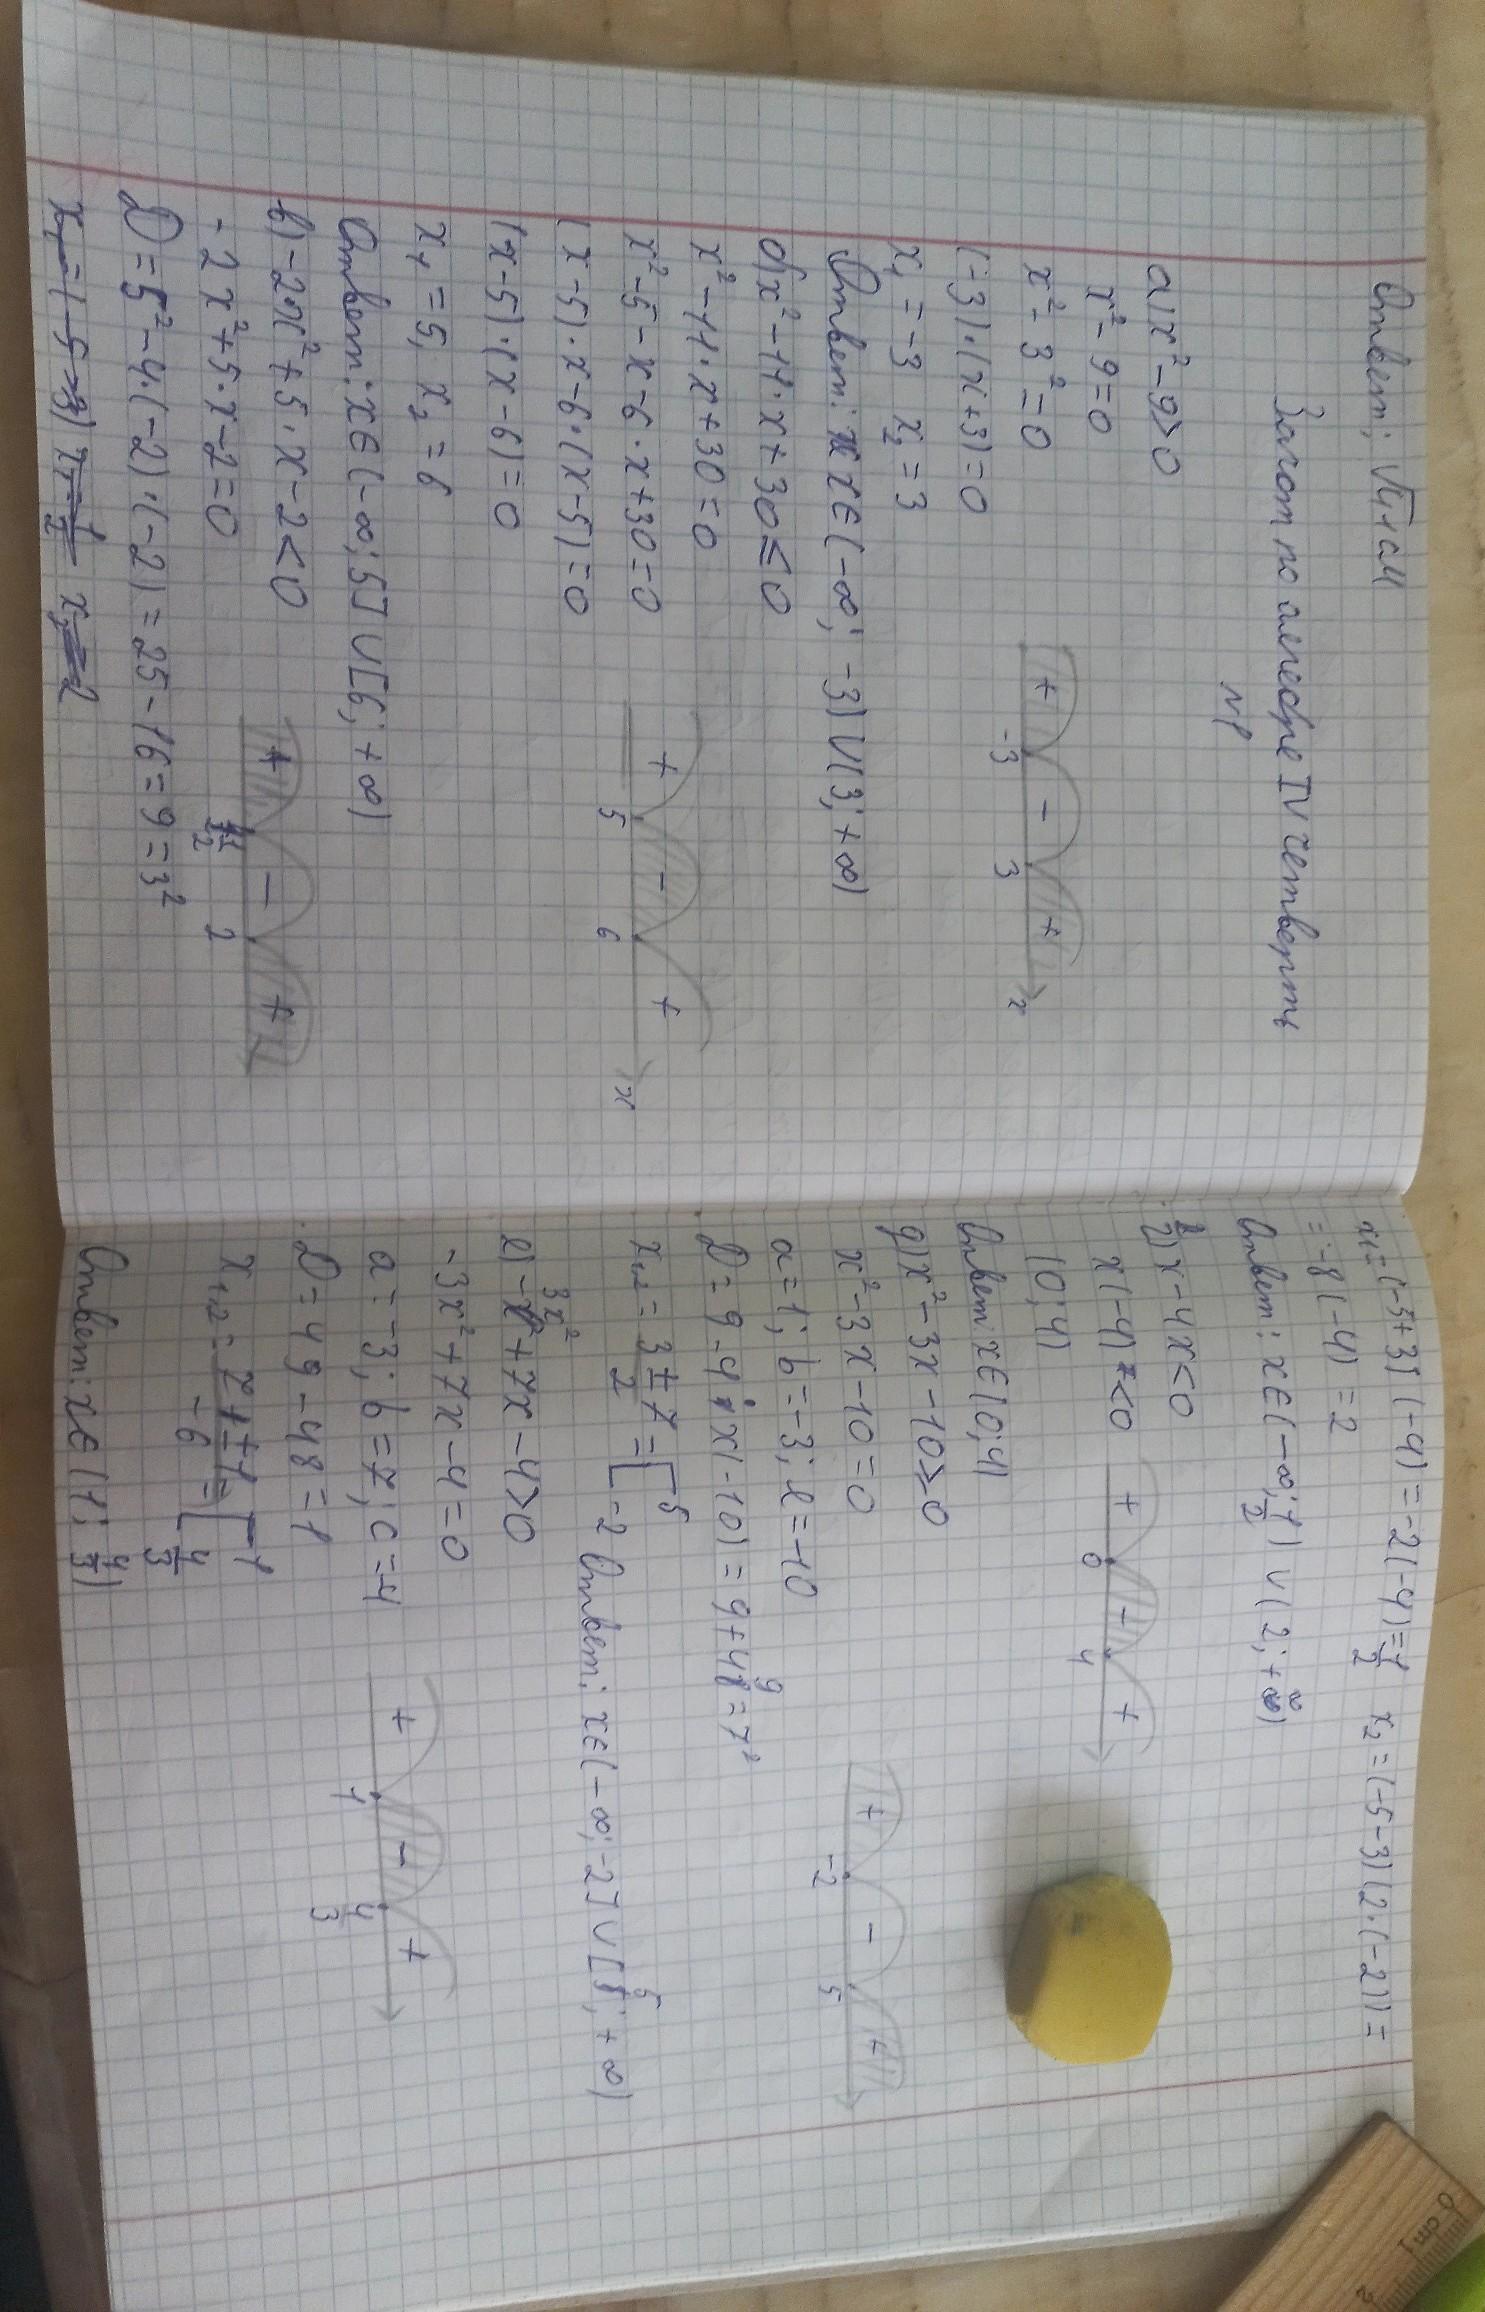 Ответ: √11 см
Зачет по алгебре IV четверть
№1
а) x² - 9 > 0
x² - 9 = 0
x² - 3² = 0
(-3) · (x + 3) = 0
x₁ = -3 x₂ = 3
+ -3 - 3 + x
Ответ: x ∈ (-∞; -3) ∪ (3; +∞)
б) x² - 11 · x + 30 ≤ 0
x² - 11 · x + 30 = 0
x² - 5 - x - 6 · x + 30 = 0
(x - 5) · x - 6 · (x - 5) = 0
(x - 5) · (x - 6) = 0
x₁ = 5, x₂ = 6
+ 5 - 6 + x
Ответ: x ∈ (-∞; 5] ∪ [6; +∞)
в) -2 · x² + 5 · x - 2 < 0
-2x² + 5 · x - 2 = 0
+ 1/2 - 2 +
D = 5² - 4 · (-2) · (-2) = 25 - 16 = 9 = 3²
x₁ = (-5+3) (-4) = -2 (-4) = 1/2 x₂ = (-5-3) (2·(-2)) =
= -8 (-4) = 2
Ответ: x ∈ (-∞; 1/2) ∪ (2; +∞)
г) x - 4x < 0
x (-4) < 0
(0; 4)
+ 0 - 4 +
Ответ: x ∈ (0; 4)
д) x² - 3x - 10 ≥ 0
x² - 3x - 10 = 0
a = 1; b = -3; c = -10
+ -2 - 5 +
D = 9 - 4 · x (-10) = 9 + 49 = 7²
x₁,₂ = 3 ± 7 / 2 = [5 -2 Ответ: x ∈ (-∞; -2] ∪ [5; +∞)
е) -3x² + 7x - 4 > 0
-3x² + 7x - 4 = 0
a = -3; b = 7; c = -4
D = 49 - 48 = 1
+ 1 - 4/3 +
x₁,₂ = 7 ± 1 / -6 = [1 4/3
Ответ: x ∈ (1; 4/3)
0 cm 1 2